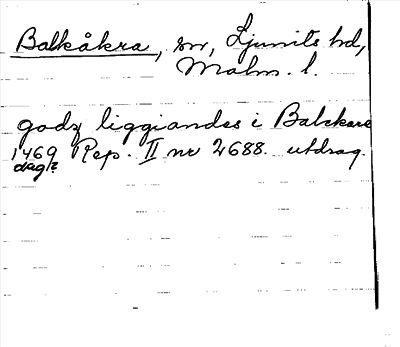 Balkåkra, sn, Ljunits hd,
Malm. l.
godz liggiandes i Balckare
1469 Rep. II nr 2688. utdrag.
dag?